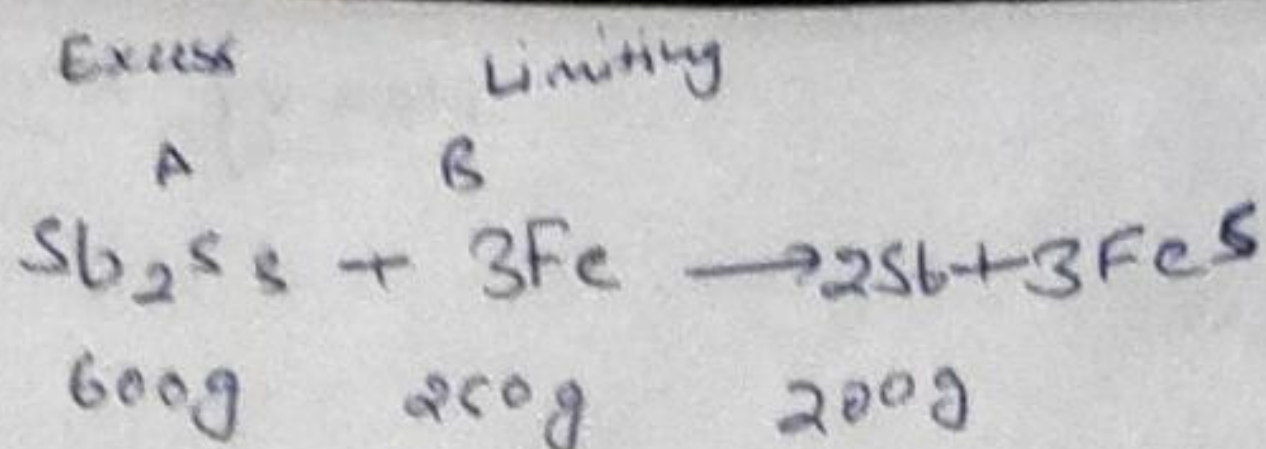 Excess Limiting
A B
Sb₂S₃ + 3Fe → 2Sb + 3FeS
600g 250g 200g